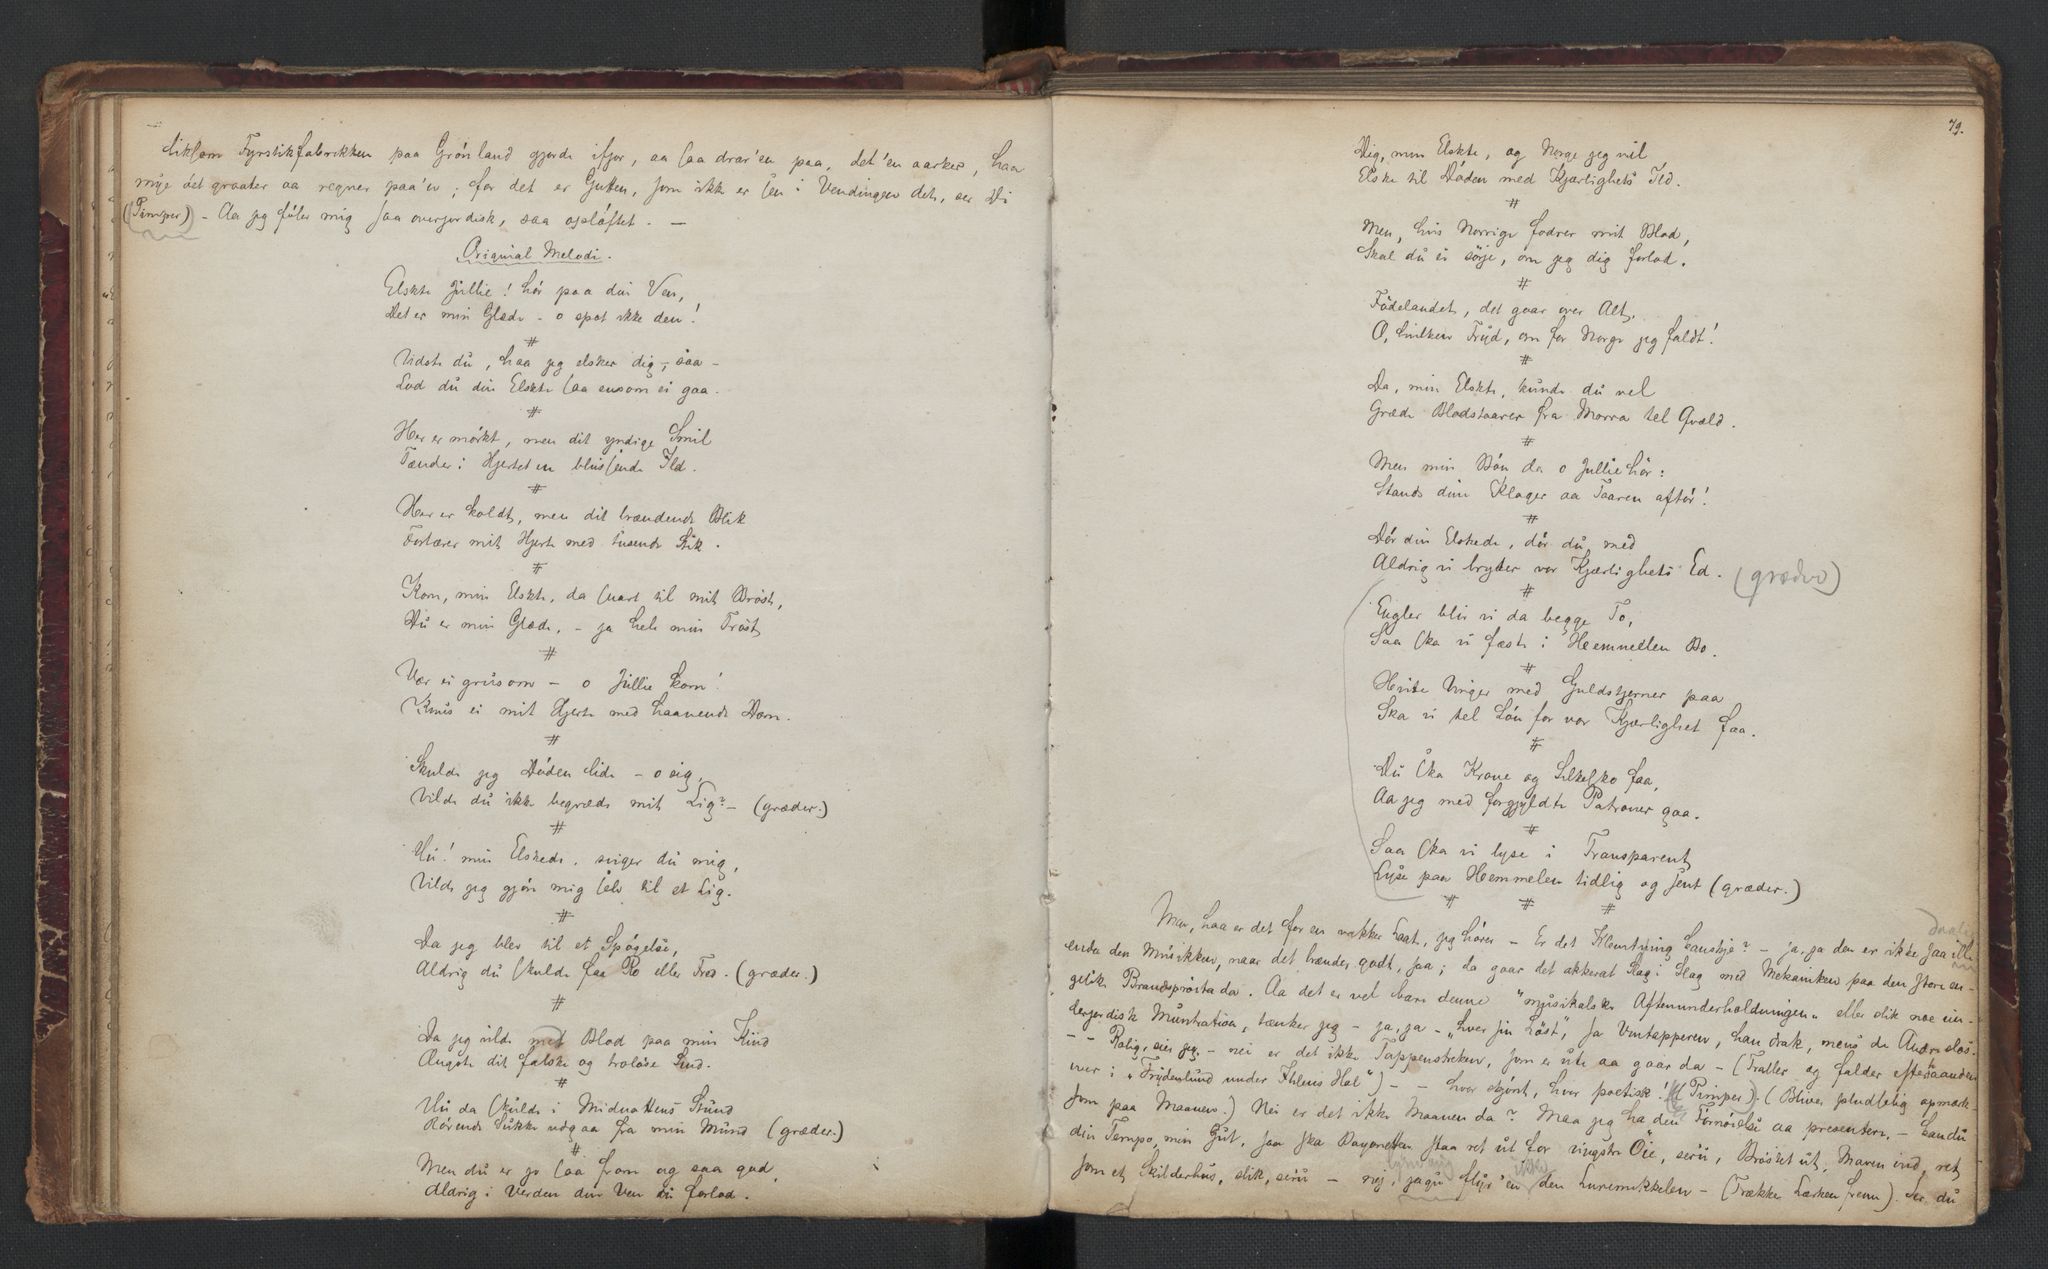 liksom Fyrstikfabrikken paa Grønland gjorde ifjor, aa saa drar'en paa, det'en aarker, haar
mye det graater aa regner paa'n; for det er Gutten, som ikke er sen i Vendingen det, ser Di
(Pimper) - Aa jeg føler mig saa overjordisk, saa opløftet. —
Original Melodi.
Elskte Jullie! hør paa din Ven,
Det er min Glæde - o spot ikke den!
#
Vidste du, haa jeg elsker dig, - saa -
Lod du din Elskte saa ensom ei gaa.
#
Her er mørkt, men dit yndige Smil
Tænder i Hjertet en blussende Ild.
#
Her er koldt, men dit brændende Blik
Fortærer mit Hjerte med tusende Stik.
#
Kom, min Elskte, da snart til mit Bryst,
Du er min Glæde, - ja hele min Trøst
#
Vær ei grusom - o Jullie kom!
Knus ei mit Hjerte med haanende Dom.
#
Skulde jeg Døden lide - o sig,
Vilde du ikke begræde mit Lig? - (græder.)
#
Hu! min Elskede, sviger du mig,
Vilde jeg gjøre mig selv til et Lig.
#
Da jeg blev til et Spøgelse,
Aldrig du skulde faa Ro eller Fred. (græder.)
#
Da jeg vilde med Blod paa min Kind
Ængste dit falske og troløse Sind.
#
Hu da skulde i Midnattens Stund
Rørende Sukke udgaa fra min Mund (græder.)
#
Men du er jo saa from og saa god,
Aldrig i Verden din Ven du forlod.
79.
Dig, min Elskte, og Norge jeg vil
Elske til Døden med Kjærlighets Ild.
#
Men, hvis Norrige fodrer mit Blod,
Skal du ei sørje, om jeg dig forlod.
#
Fødelandet, det gaar over Alt,
O, hvilken Fryd, om for Norge jeg faldt!
#
Da, min Elskte, kunde du vel
Græde Blodstaarer fra Morra tel Qvæld.
#
Men min Bøn da o Jullie hør:
Stands dine Klager aa Taaren aftør!
#
Dør din Elskede, dør du med
Aldrig vi bryter vor Kjærlighets Ed. (græder)
#
Engler blir vi da begge To,
Saa ska vi fæste i Heemmellen Bo.
#
Hvite Vinger med Guldstjerner paa
Ska vi tel Løn for vor Kjærlighet faa.
#
Du ska Krone og Silkesko faa,
Aa jeg med forgyldte Patroner gaa.
#
Saa ska vi lyse i Transparent
Lyse paa Hemmelen tidlig og sent (græder.)
# # #
Men, haa er det for en vakker Laat, jeg hører - Er det Klemtning kanskje? - ja, ja den er ikke saa ille
enda den Musikken, naar det brænder godt, saa; da gaar det akkerat Slag i Slag med Mekaniken paa den store en-
gelske Brandsprøita da. Aa det er vel bare denne "musikalske Aftenunderholdningen" eller slik noe un-
derjordisk Muntration, tænker jeg - ja, ja - "hver sin Løst", sa Vintapperen, han drak, mens de Andre slos.
- - Rolig, sier jeg. - nei er det ikke Tappenstreken, som er ute aa gaar da - (Traller og falder efterhaanden
over i "Frydenlund under Ihlens Hal") - - hvor skjønt, hvor poetisk! (Pimper). (Bliver pludselig opmærk-
som paa Maanen.) Nei er det ikke Maanen da? Maa jeg ha den Fornøielse aa presentere. - kan du
din Tempo, min Gut, saa ska Bayonetten staa ret ut for vingstre Øie, seru, Brøstet ut, Maven ind, ret
som et Skilderhus, slik, seru - nei, jagu flyr'en ikke den Luremikkelen - (Trækker Lærken frem). Ser du